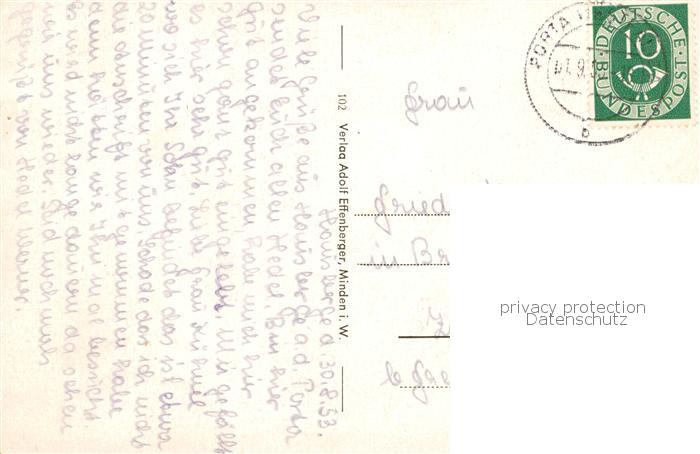 Hausberge d. 30.8.53.
Viele Grüße aus Hausberge a.d. Porta
sendet Euch allen Hedel. Bin hier
gut angekommen, habe mich hier
schon ganz gut ein gelebt. Mir gefällt
es hier sehr gut. Liebe Frau
wo sich Ihr Sohn befindet das ist etwa
20 Minuten von uns. Schade das ich nicht
die Anschrift mitgenommen habe
dann hätten wir Ihn mal besucht
Es wird nicht lange dauern da sehen
wir uns wieder. Seid nochmals
gegrüßt von Hedel
102 Verlag Adolf Effenberger, Minden i. W.
Frau
Fried
in Br
PORTA
DEUTSCHE
BUNDESPOST
10
b
privacy protection
Datenschutz